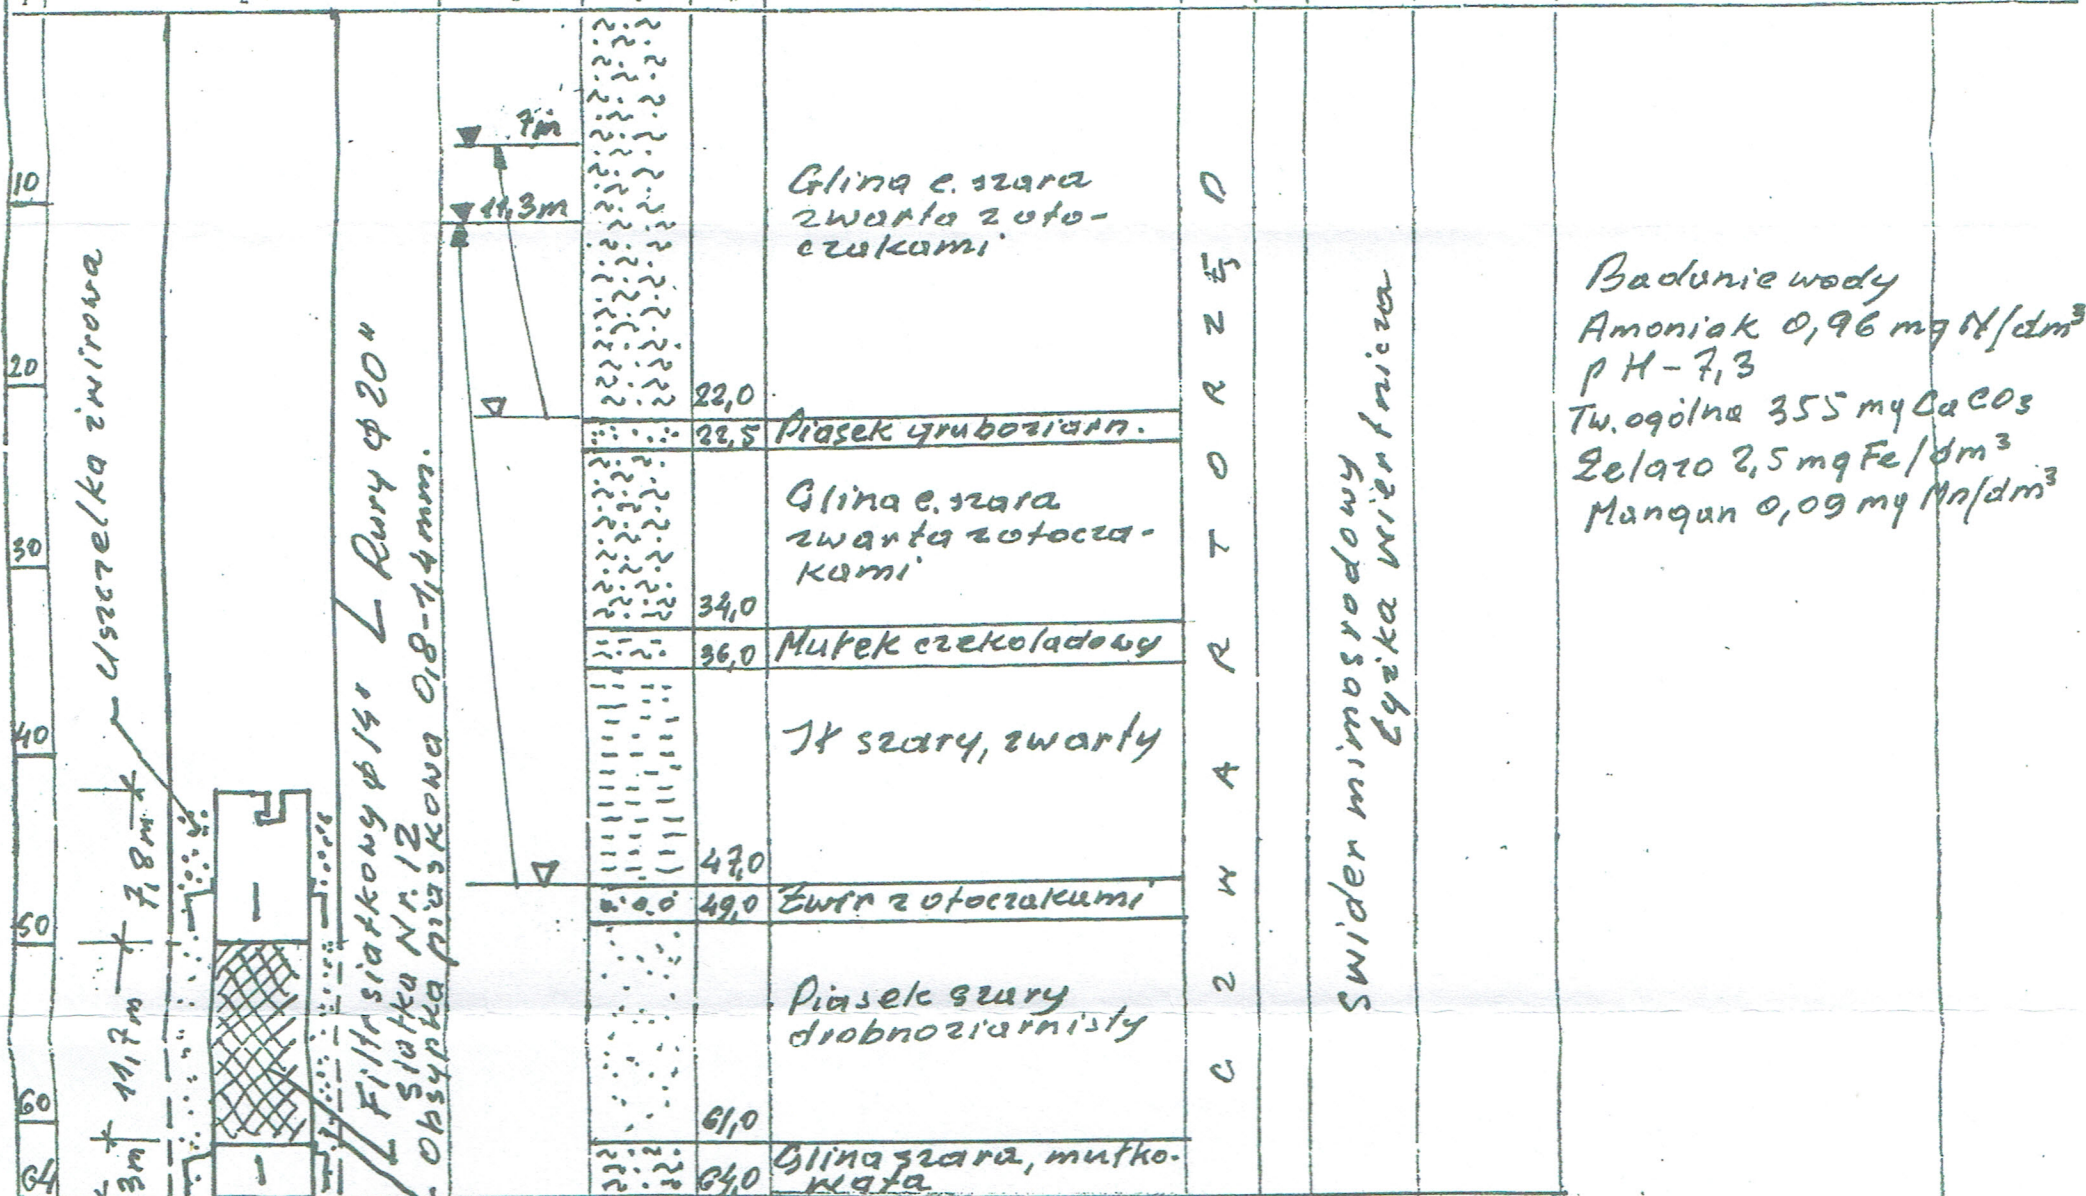 10
20
30
40
50
60
64
Uszczelka żwirowa
7,8m
11,7m
3m
Rury ϕ 20"
Filtr siatkowy ϕ 14"
Siatka Nr. 12
Obsypka piaskowa 0,8-1,4mm.
7m
11,3m
22,0
22,5
34,0
36,0
47,0
49,0
61,0
64,0
Glina c. szara
zwarta z oto-
czakami
Piasek gruboziarn.
Glina c. szara
zwarta z otocza-
kami
Mułek czekoladowy
Ił szary, zwarty
Żwir z otoczakami
Piasek szary
drobnoziarnisty
Glina szara, mułko-
wata
CZWARTORZĘD
Świder mimosrodowy
Łyżka wiertnicza
Badanie wody
Amoniak 0,96 mg N/dm³
pH - 7,3
Tw. ogólna 355 mg CaCO₃
Żelazo 2,5 mg Fe/dm³
Mangan 0,09 mg Mn/dm³